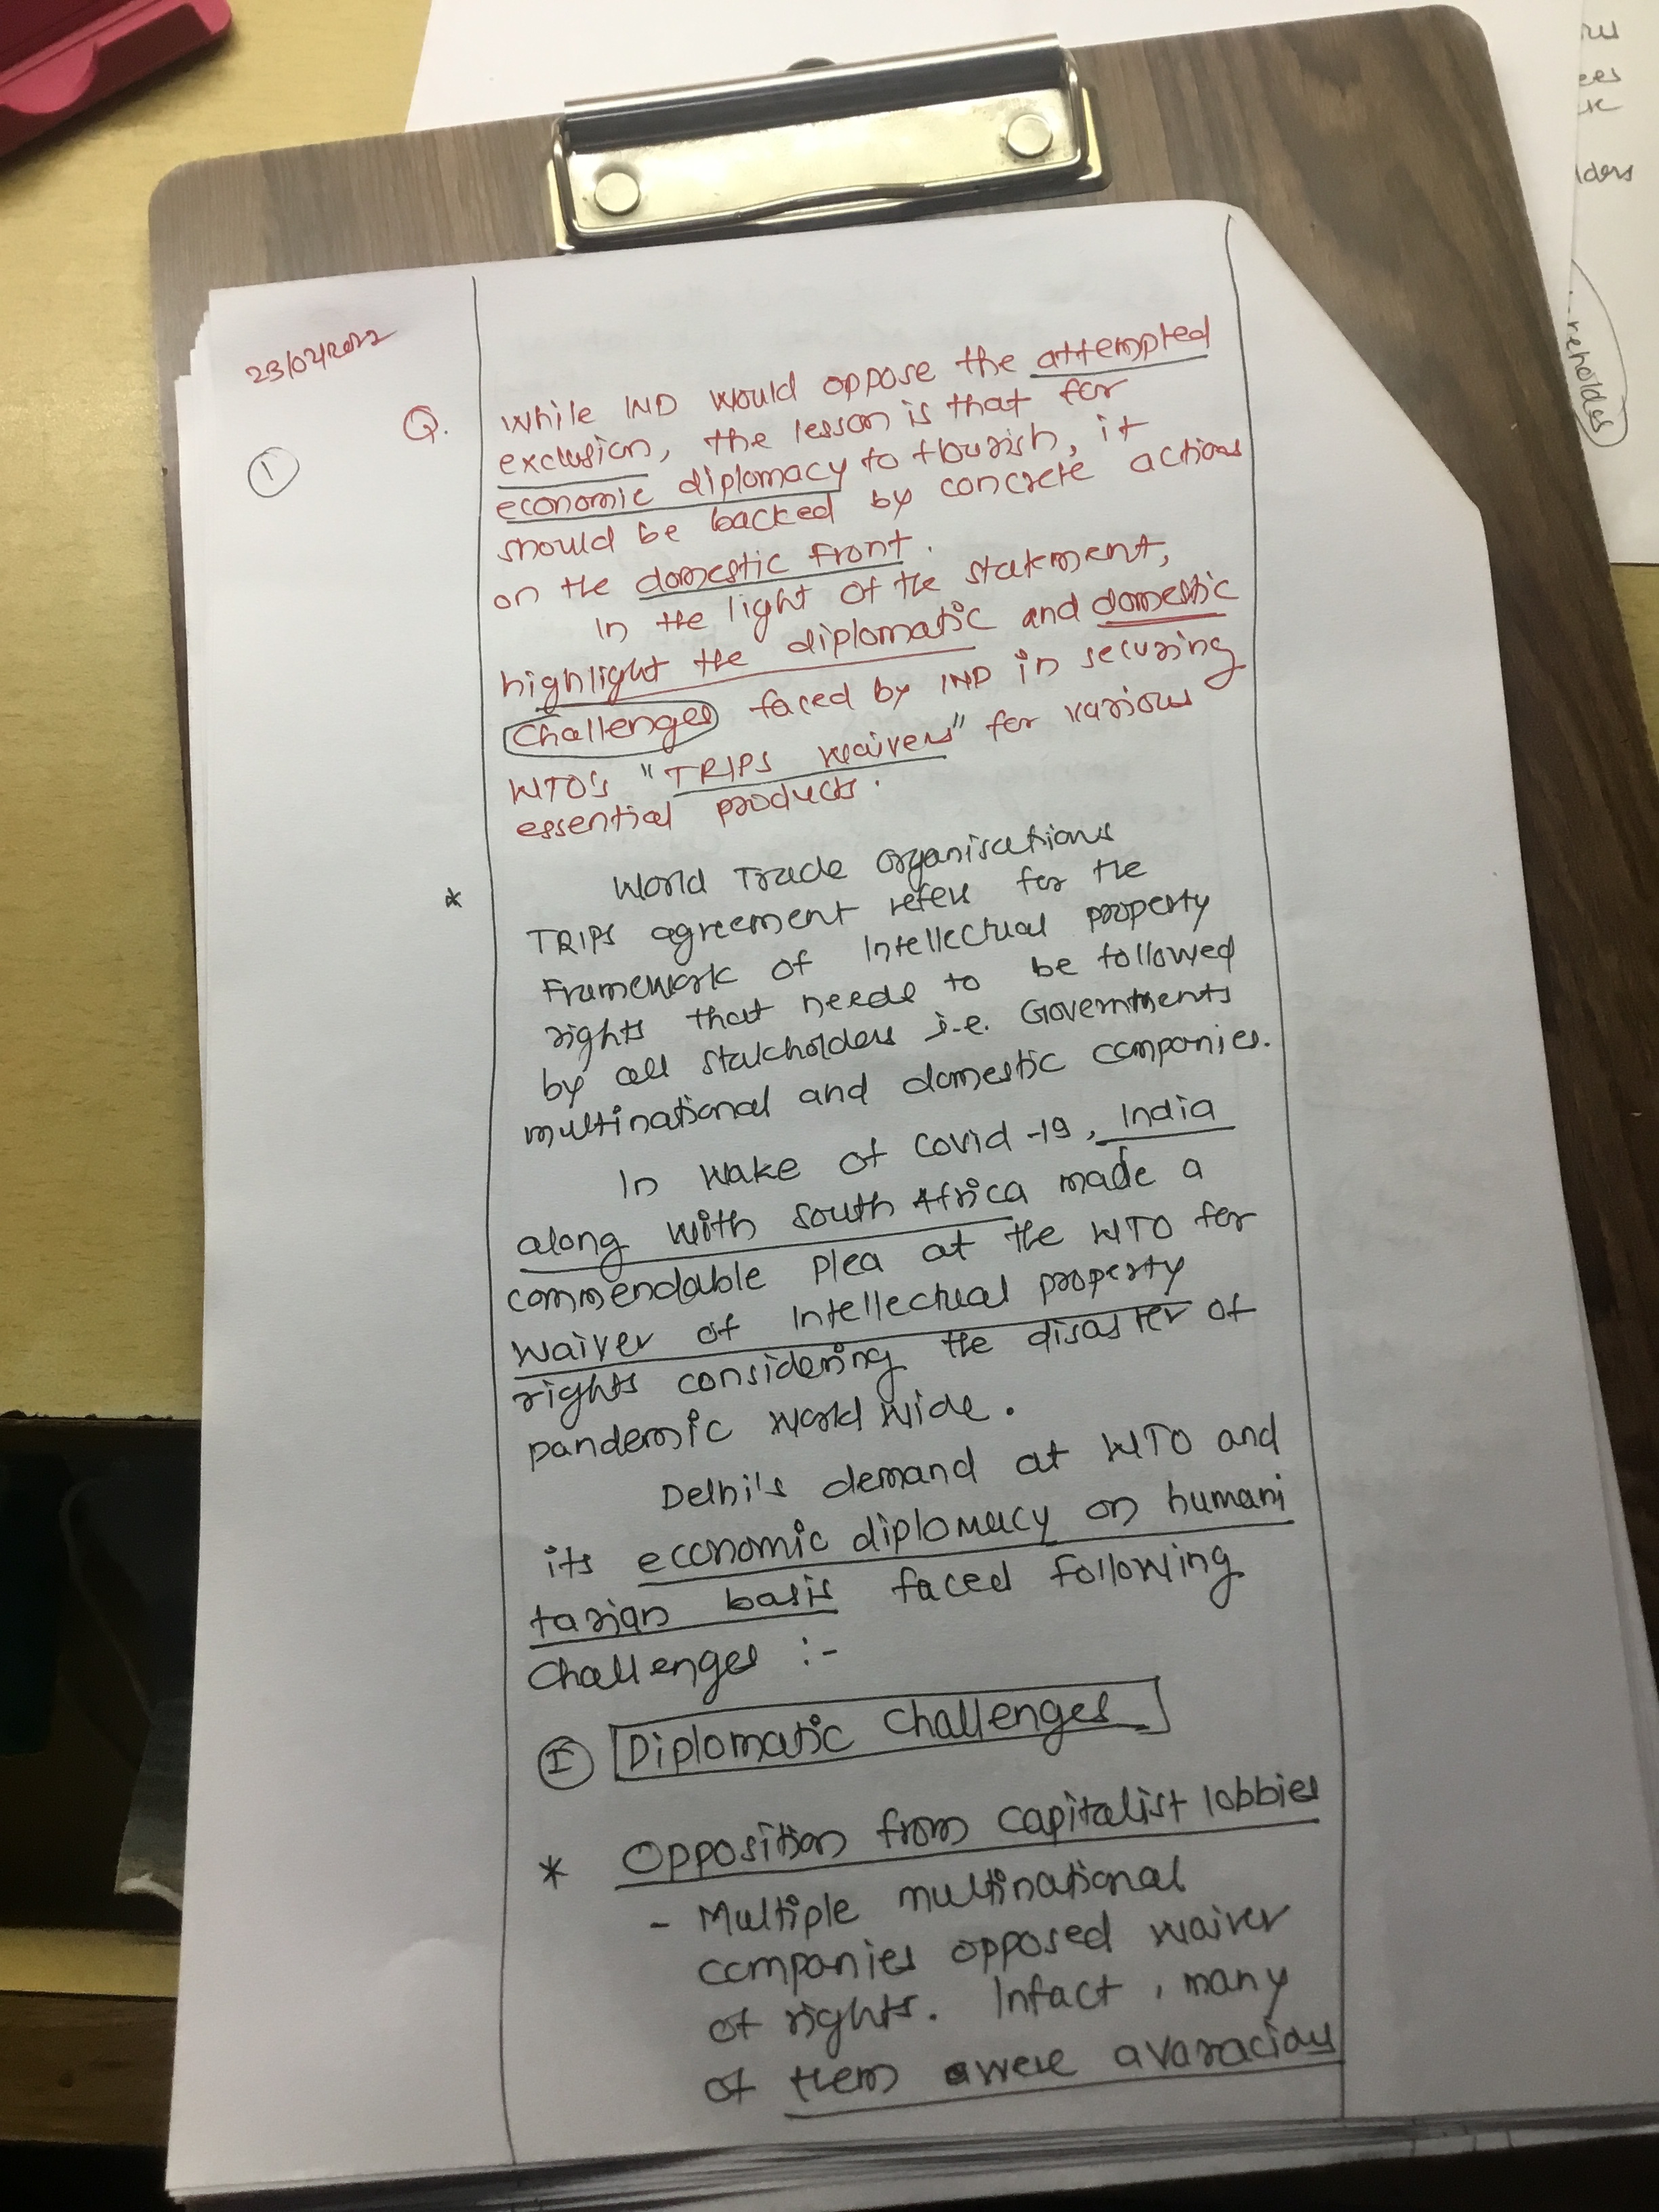 23/04/2022
Q.
1
While IND would oppose the attempted
exclusion, the lesson is that for
economic diplomacy to flourish, it
should be backed by concrete actions
on the domestic front.
In the light of the statement,
highlight the diplomatic and domestic
Challenges faced by IND in securing
WTO's "TRIPS waivers" for various
essential products.
* World Trade Organisations
TRIPS agreement refers for the
Framework of Intellectual property
rights that needs to be followed
by all stakeholders i.e. Governments
multinational and domestic companies.
In wake of Covid-19, India
along with South Africa made a
commendable plea at the WTO for
waiver of Intellectual property
rights considering the disaster of
pandemic world wide.
Delhi's demand at WTO and
its economic diplomacy on humani
tarian basis faced following
Challenges :-
I Diplomatic Challenges
* Opposition from capitalist lobbies
- Multiple multinational
companies opposed waiver
of rights. Infact, many
of them were avaracious
ers
ees
lders
reholdes